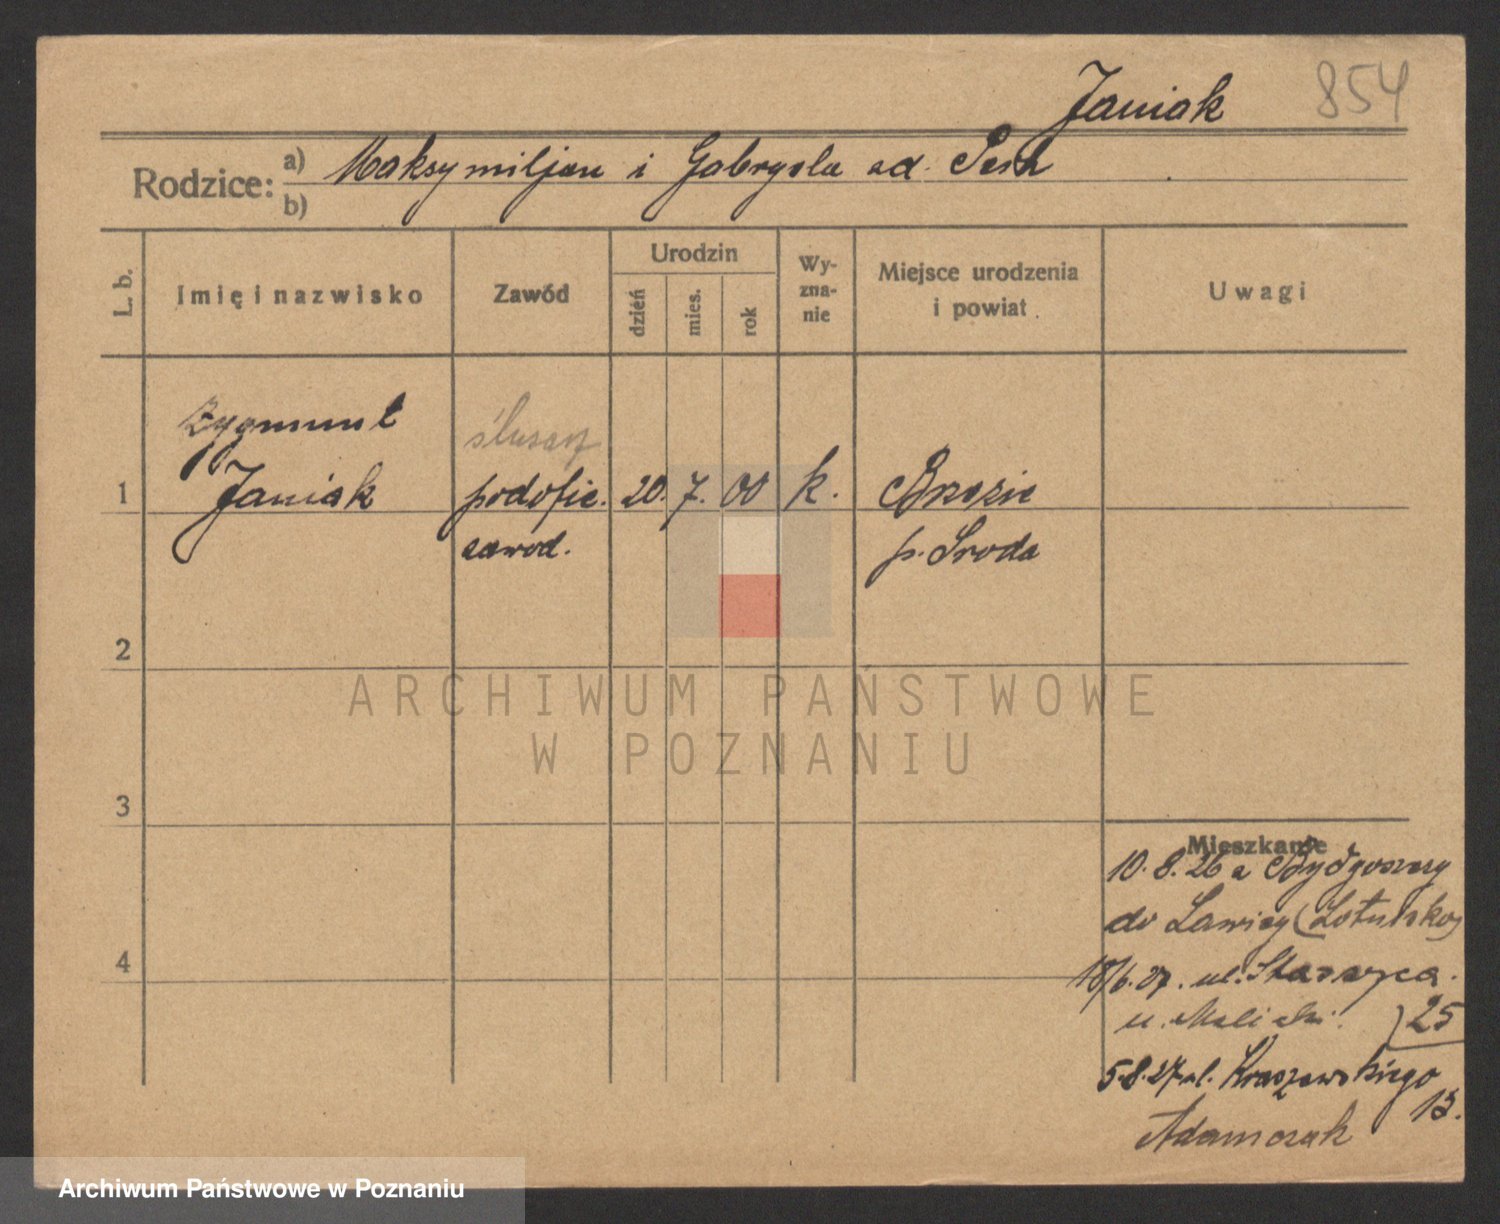 Janiak
854
Rodzice: a) Maksymiljan i Gabryela od.
b)
L. b.
Imię i nazwisko
Zawód
Urodzin
dzień
mies.
rok
Wy-
zna-
nie
Miejsce urodzenia
i powiat
Uwagi
Zygmunt
ślusarz
1 Janiak podofic. 20. 7. 00 k. Brzezie
zawod. p. Sroda
2
ARCHIWUM PAŃSTWOWE
W POZNANIU
3
Mieszkanie
10.8.26 z Bydgoszczy
do Lawicy (Lotnisko)
4
18/6.27. ul. Staszyca.
u. 25
5.8.27 ul. Kraszewskiego
13.
Adamczak
Archiwum Państwowe w Poznaniu